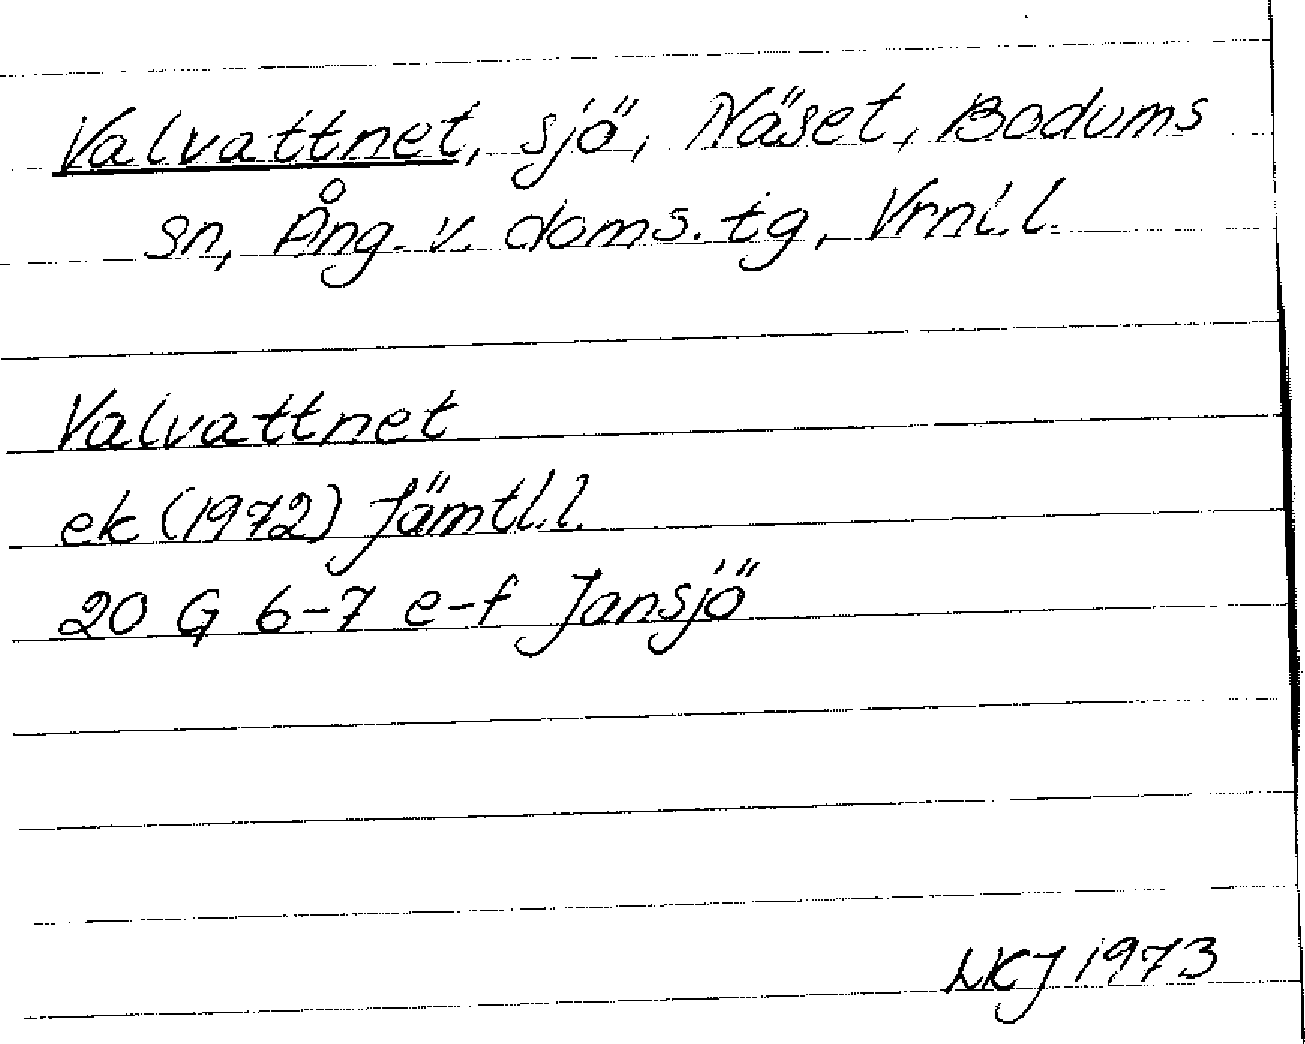 Valvattnet, sjö, Näset, Bodums
sn, Ång. v. doms. tg, Vrnl.l.
Valvattnet
ek (1972) Jämtl.l.
20 G 6-7 e-f Jansjö
LKJ 1973